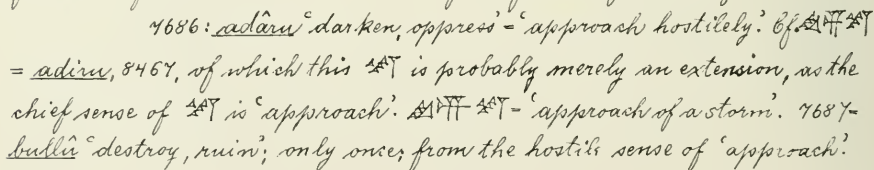 7686: adâru 'darken, oppress' = 'approach hostilely'. Cf.
= adiru, 8467, of which this is probably merely an extension, as the
chief sense of is 'approach'. = 'approach of a storm'. 7687 =
bullû 'destroy, ruin'; only once; from the hostile sense of 'approach'.